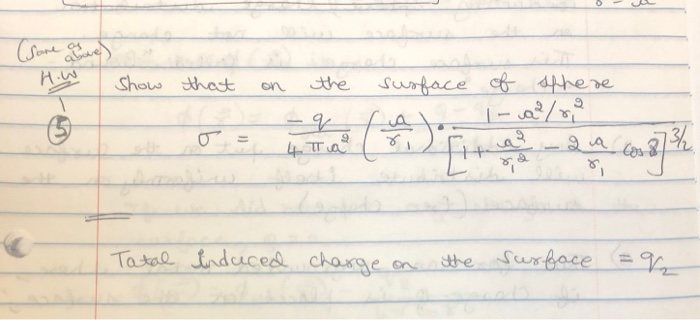 (Same as above)
H.W Show that on the surface of sphere
(5) σ = -q/4πa² (a/r₁) · 1 - a²/r₁² / [1 + a²/r₁² - 2 a/r₁ cos γ]^3/2
Tatal Induced charge on the surface = q₂